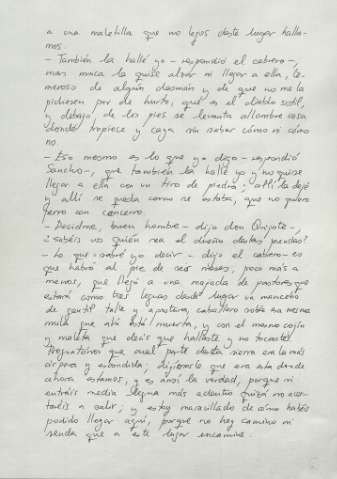 a una maletilla que no lejos deste lugar halla-
mos.
- También la hallé yo - respondió el cabrero -,
mas nunca la quise alzar ni llegar a ella, te-
meroso de algún desmán y de que no me la
pidiesen por de hurto; que es el diablo sotil,
y debajo de los pies se levanta allombre cosa
donde tropiece y caya sin saber cómo ni cómo
no.
- Eso mesmo es lo que yo digo - respondió
Sancho -, que también la hallé yo y no quise
llegar a ella con un tiro de piedra; allí la dejé
y allí se queda como se estaba, que no quiero
perro con cencerro.
- Decidme, buen hombre - dijo don Quijote -,
¿sabéis vos quién sea el dueño destas prendas?
- Lo que sabré yo decir - dijo el cabrero - es
que habrá al pie de seis meses, poco más a
menos, que llegó a una majada de pastores que
estará como tres leguas deste lugar un mancebo
de gentil talle y apostura, caballero sobre esa mesma
mula que ahí está muerta, y con el mesmo cojín
y maleta que decís que hallastes y no tocastes.
Preguntónos que cuál parte desta sierra era la más
áspera y escondida; dijímosle que era esta donde
ahora estamos, y es ansí la verdad, porque si
entráis media legua más adentro quizá no acer-
taréis a salir; y estoy maravillado de cómo habéis
podido llegar aquí, porque no hay camino ni
senda que a este lugar encamine.